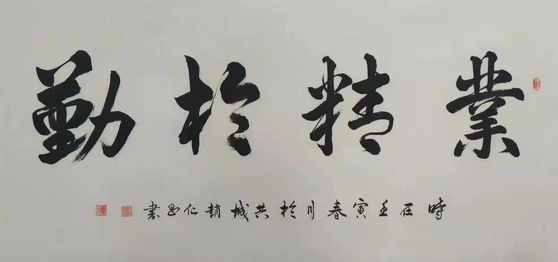 業精於勤
時在壬寅春月於共城趙仁書